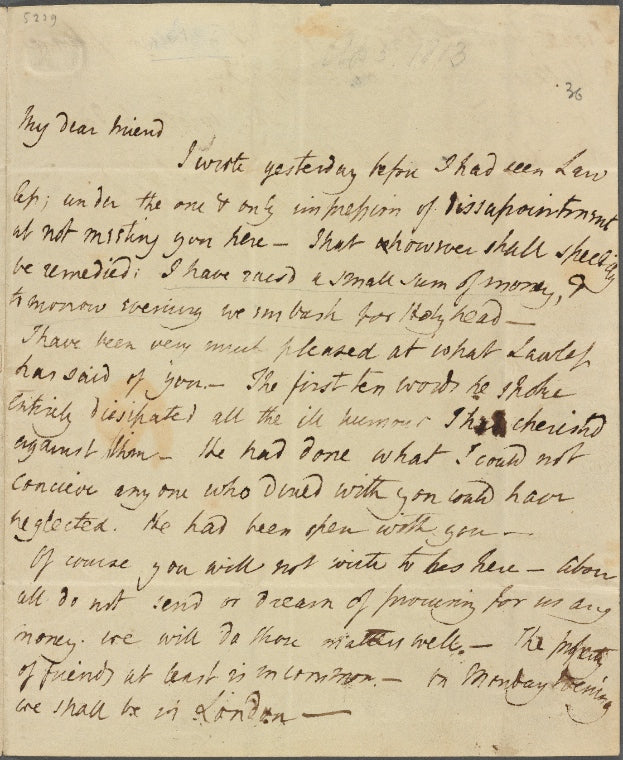 5229
Ap 3. 1813
36
My dear friend
I wrote yesterday before I had seen Law
less; under the one & only impression of dissapointment
at not meeting you here — That however shall speedily
be remedied; I have raised a small sum of money, &
tomorrow evening we embark for Holyhead —
I have been very much pleased at what Lawless
has said of you — The first ten words he spoke
entirely dissipated all the ill humour I had cherished
against him — He had done what I could not
concieve any one who dined with you could have
neglected. He had been open with you —
Of course you will not write to us here — above
all do not send or dream of procuring for us any
money. we will do those matters well. — The property
of friends at least is in common. — On Monday Evening
we shall be in London —